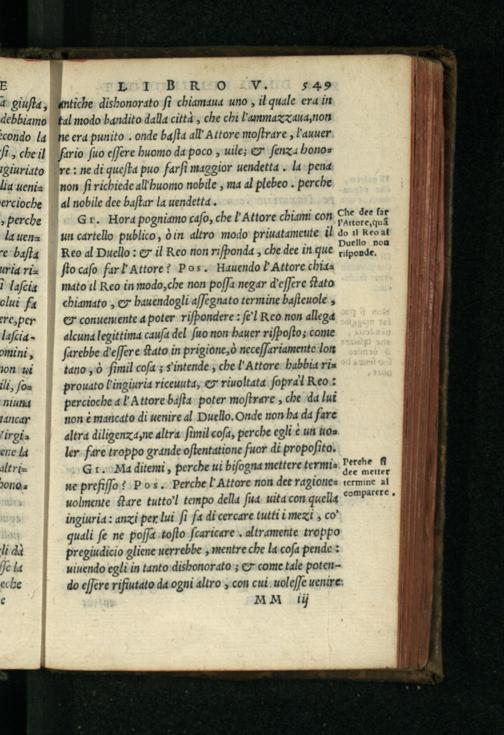 LIBRO V. 549
antiche dishonorato si chiamaua uno, il quale era in
tal modo bandito dalla città, che chi l'ammazzaua, non
ne era punito. onde basta all'Attore mostrare, l'auuer
sario suo essere huomo da poco, uile; & senza hono=
re: ne di questa puo farsi maggior uendetta. la pena
non si richiede all'huomo nobile, ma al plebeo. perche
al nobile dee bastar la uendetta.
Gi. Hora pogniamo caso, che l'Attore chiami con
un cartello publico, ò in altro modo priuatamente il
Reo al Duello: & il Reo non risponda, che dee in que
sto caso far l'Attore? Pos. Hauendo l'Attore chia=
mato il Reo in modo, che non possa negar d'essere stato
chiamato, & hauendogli assegnato termine basteuole,
& conueniente a poter rispondere: se'l Reo non allega
alcuna legittima causa del suo non hauer risposto; come
sarebbe d'essere stato in prigione, ò necessariamente lon
tano, ò simil cosa; s'intende, che l'Attore habbia ri=
prouato l'ingiuria riceuuta, & riuoltata sopra'l Reo:
percioche a l'Attore basta poter mostrare, che da lui
non è mancato di uenire al Duello. Onde non ha da fare
altra diligenza, ne altra simil cosa, perche egli è un uo=
ler fare troppo grande ostentatione fuor di proposito.
Gi. Ma ditemi, perche ui bisogna mettere termi=
ne prefisso? Pos. Perche l'Attore non dee ragione=
uolmente stare tutto'l tempo della sua uita con quella
ingiuria: anzi per lui si fa di cercare tutti i mezi, co'
quali se ne possa tosto scaricare. altramente troppo
pregiudicio gliene uerrebbe, mentre che la cosa pende:
uiuendo egli in tanto dishonorato; & come tale poten=
do essere rifiutato da ogni altro, con cui uolesse uenire
MM iij
Che dee far
l'Attore, quã
do il Reo al
Duello non
risponde.
Perche si
dee metter
termine al
comparere.
E
giusta,
debbiamo
econdo la
si, che il
agiuriato
lla ueni=
percioche
, perche
la uen=
re basta
uria ri=
i lascia
olui fa
ere, per
lascia=
omini,
non ui
ili, so=
niuna
ancar
Virgi=
ene la
altri=
hono=
gli dà
sse la
eche
e